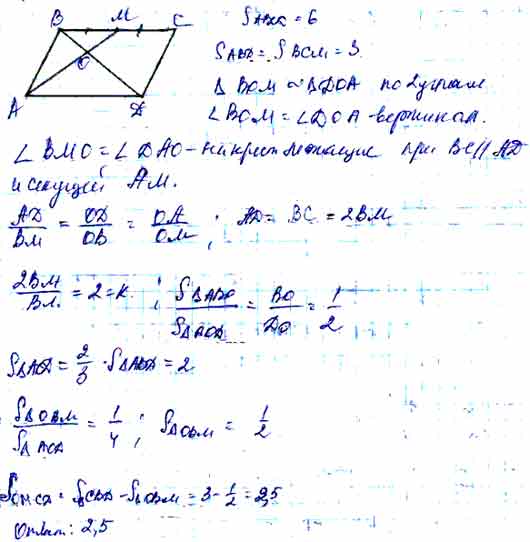 B M C
O
A D
S ABCD = 6
S ABD = S BCD = 3
Δ BOM ∼ ΔDOA по 2 углам
∠BOM = ∠DOA - вертикал.
∠BMO = ∠DAO - накрест лежащие при BC || AD
и секущей AM.
AD/BM = OD/OB = OA/OM ; AD = BC = 2BM
2BM/BM = 2 = K ; SΔABO/SΔAOD = BO/DO = 1/2
SΔAOD = 2/3 · SΔABD = 2
SΔOBM/SΔAOD = 1/4 ; SΔOBM = 1/2
S OMCD = S CBD - SΔOBM = 3 - 1/2 = 2,5
Ответ: 2,5